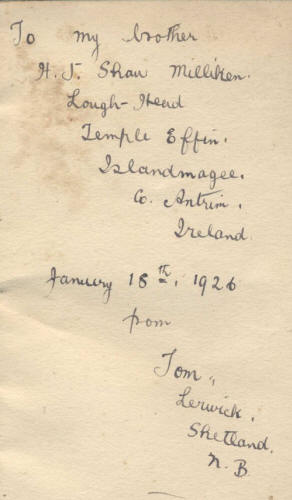 To my brother
H. J. Shaw Milliken.
Lough-Head
Temple Effin.
Islandmagee.
Co. Antrim.
Ireland.
January 18th, 1926
from
Tom,,
Lerwick.
Shetland.
N. B